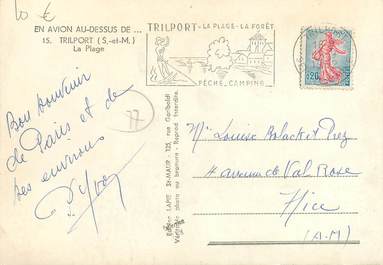 10 €
EN AVION AU-DESSUS DE ...
15. TRILPORT (S.-et-M.)
La Plage
TRILPORT - LA PLAGE - LA FORÊT
PÊCHE, CAMPING
0,20
77
Bon souvenir
de Paris et de
ses environs
Edition LAPIE St-MAUR - 125, rue Garibaldi
Véritable photo au bromure - Reprod. Interdite.
Louise
4 avenue de Val Rose
Nice
(A.M)